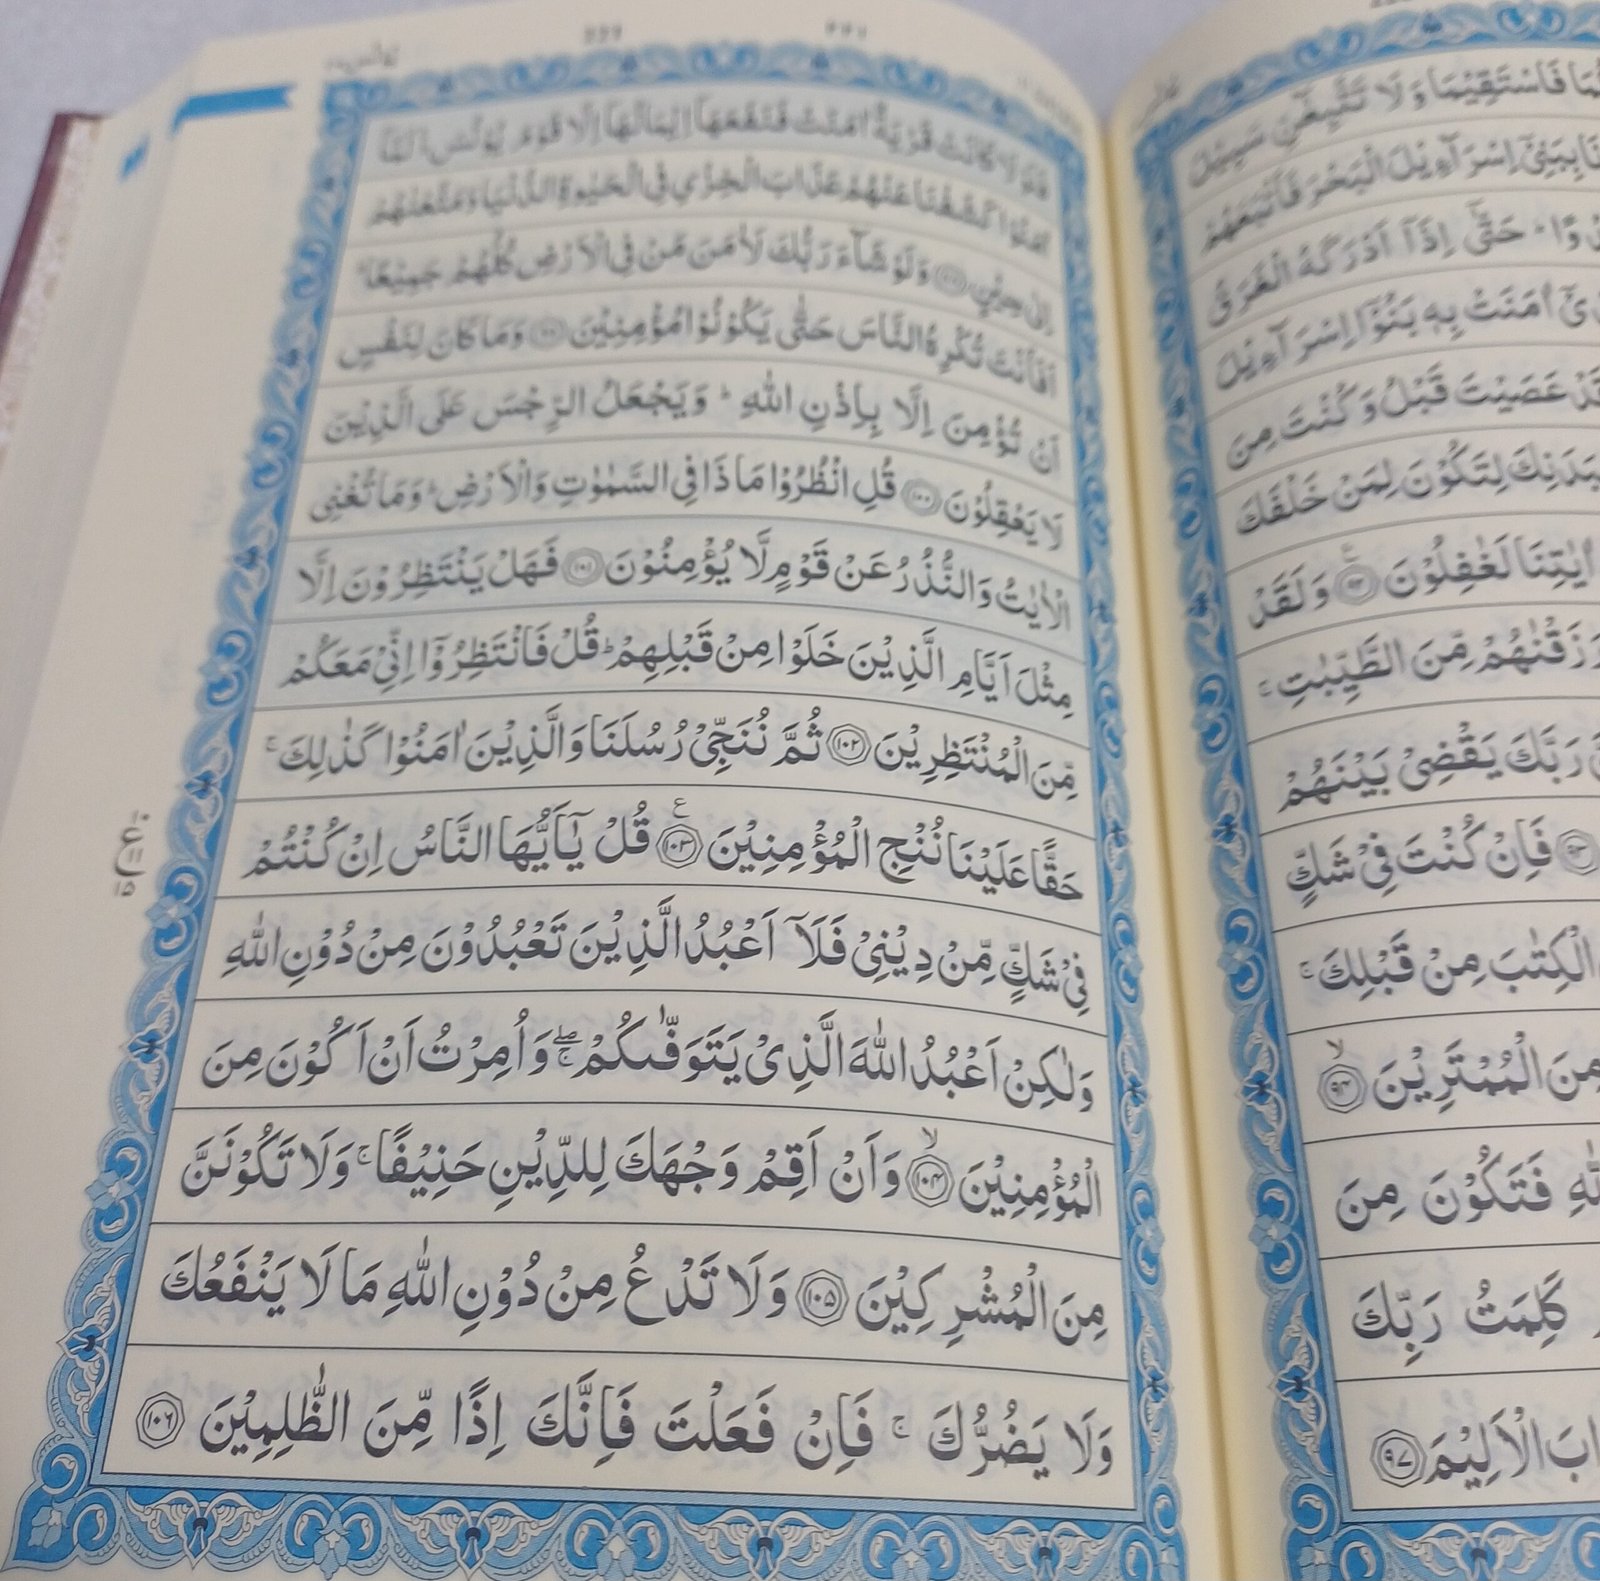 فَلَوْلَا كَانَتْ قَرْيَةٌ اٰمَنَتْ فَنَفَعَهَاۤ اِيْمَانُهَاۤ اِلَّا قَوْمَ يُوْنُسَ ؕ لَمَّاۤ
اٰمَنُوْا كَشَفْنَا عَنْهُمْ عَذَابَ الْخِزْيِ فِي الْحَيٰوةِ الدُّنْيَا وَ مَتَّعْنٰهُمْ
اِلٰى حِيْنٍ ۹۸ وَ لَوْ شَآءَ رَبُّكَ لَاٰمَنَ مَنْ فِي الْاَرْضِ كُلُّهُمْ جَمِيْعًا ؕ
اَفَاَنْتَ تُكْرِهُ النَّاسَ حَتّٰى يَكُوْنُوْا مُؤْمِنِيْنَ ۹۹ وَ مَا كَانَ لِنَفْسٍ
اَنْ تُؤْمِنَ اِلَّا بِاِذْنِ اللّٰهِ ؕ وَ يَجْعَلُ الرِّجْسَ عَلَى الَّذِيْنَ
لَا يَعْقِلُوْنَ ۱۰۰ قُلِ انْظُرُوْا مَا ذَا فِي السَّمٰوٰتِ وَ الْاَرْضِ ؕ وَ مَا تُغْنِى
الْاٰيٰتُ وَ النُّذُرُ عَنْ قَوْمٍ لَّا يُؤْمِنُوْنَ ۱۰۱ فَهَلْ يَنْتَظِرُوْنَ اِلَّا
مِثْلَ اَيَّامِ الَّذِيْنَ خَلَوْا مِنْ قَبْلِهِمْ ؕ قُلْ فَانْتَظِرُوْۤا اِنِّىْ مَعَكُمْ
مِّنَ الْمُنْتَظِرِيْنَ ۱۰۲ ثُمَّ نُنَجِّىْ رُسُلَنَا وَ الَّذِيْنَ اٰمَنُوْا كَذٰلِكَ ۚ
حَقًّا عَلَيْنَا نُنْجِ الْمُؤْمِنِيْنَ ۱۰۳ ع قُلْ يٰۤاَيُّهَا النَّاسُ اِنْ كُنْتُمْ
فِىْ شَكٍّ مِّنْ دِيْنِىْ فَلَاۤ اَعْبُدُ الَّذِيْنَ تَعْبُدُوْنَ مِنْ دُوْنِ اللّٰهِ
وَ لٰكِنْ اَعْبُدُ اللّٰهَ الَّذِىْ يَتَوَفّٰىكُمْ ۖۚ وَ اُمِرْتُ اَنْ اَكُوْنَ مِنَ
الْمُؤْمِنِيْنَ ۙ ۱۰۴ وَ اَنْ اَقِمْ وَجْهَكَ لِلدِّيْنِ حَنِيْفًا ۚ وَ لَا تَكُوْنَنَّ
مِنَ الْمُشْرِكِيْنَ ۱۰۵ وَ لَا تَدْعُ مِنْ دُوْنِ اللّٰهِ مَا لَا يَنْفَعُكَ
وَ لَا يَضُرُّكَ ۚ فَاِنْ فَعَلْتَ فَاِنَّكَ اِذًا مِّنَ الظّٰلِمِيْنَ ۱۰۶
فَاسْتَقِيْمَا وَ لَا تَتَّبِعٰٓنِّ سَبِيْلَ
بِبَنِىْۤ اِسْرَآءِيْلَ الْبَحْرَ فَاَتْبَعَهُمْ
حَتّٰۤى اِذَاۤ اَدْرَكَهُ الْغَرَقُ
اٰمَنَتْ بِهٖ بَنُوْۤا اِسْرَآءِيْلَ
عَصَيْتَ قَبْلُ وَ كُنْتَ مِنَ
بِبَدَنِكَ لِتَكُوْنَ لِمَنْ خَلْفَكَ
اٰيٰتِنَا لَغٰفِلُوْنَ ۹۲ ع وَ لَقَدْ
رَزَقْنٰهُمْ مِّنَ الطَّيِّبٰتِ ۚ
رَبَّكَ يَقْضِىْ بَيْنَهُمْ
۹۳ فَاِنْ كُنْتَ فِىْ شَكٍّ
الْكِتٰبَ مِنْ قَبْلِكَ ۚ
مِنَ الْمُمْتَرِيْنَ ۙ ۹۴
فَتَكُوْنَ مِنَ
كَلِمَتُ رَبِّكَ
الْاَلِيْمَ ۹۷